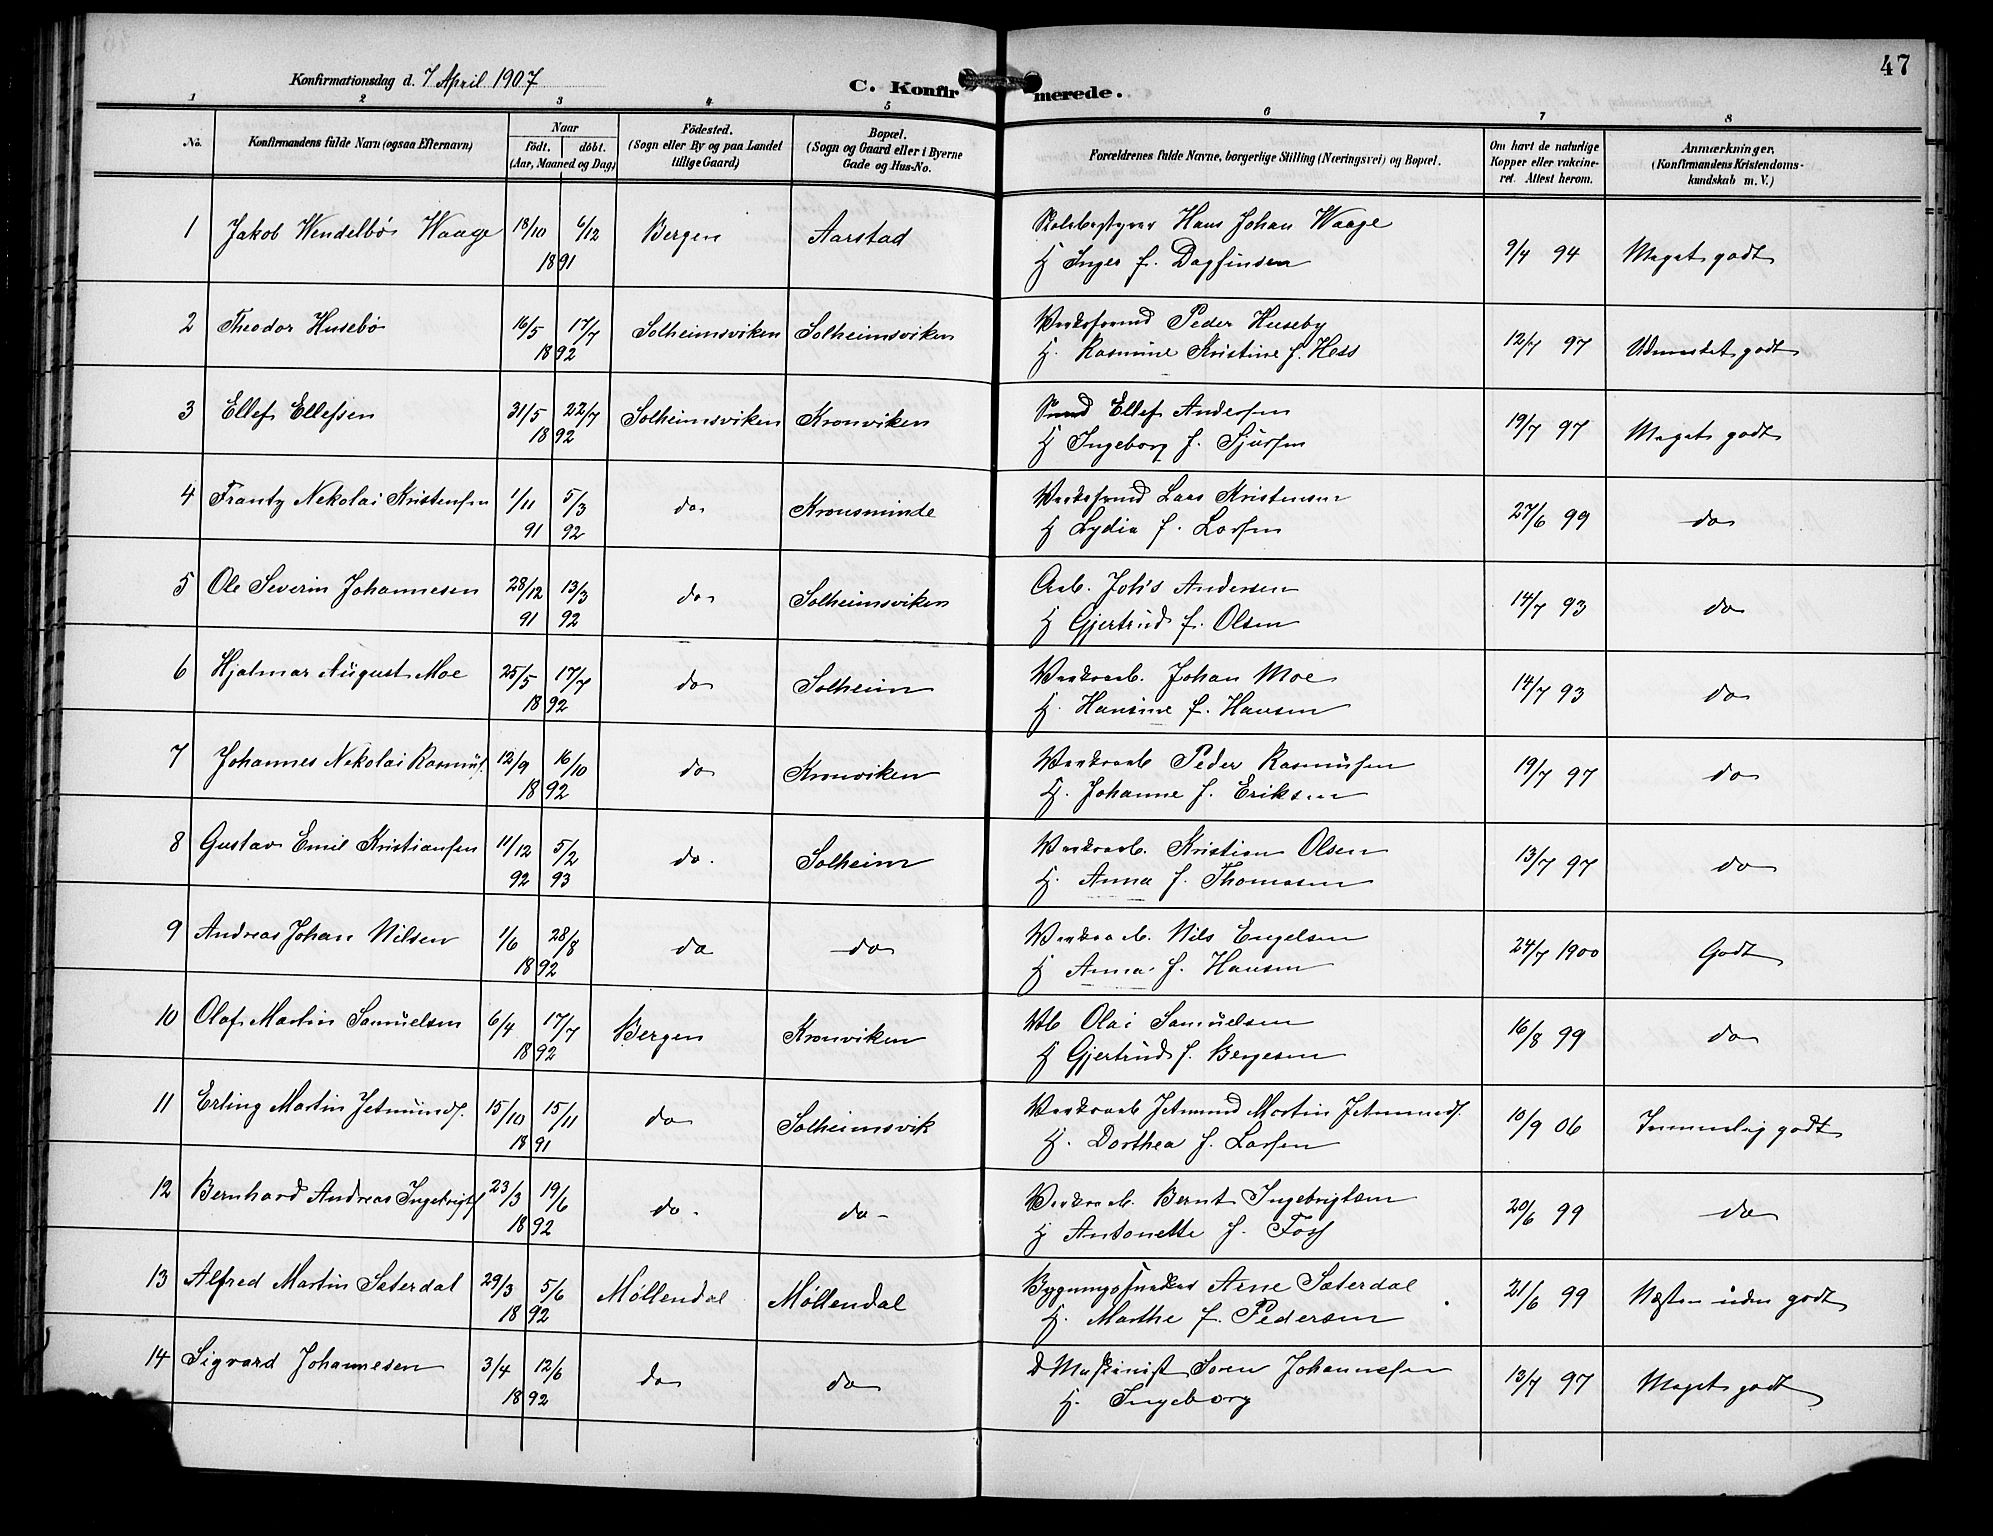 47
Konfirmationsdag d. 7 April 1907
C. Konfirmerede.
1 2 3 4 5 6 7 8
No.
Konfirmandens fulde Navn (ogsaa Efternavn)
Naar
født. døbt.
(Aar, Maaned og Dag)
Fødested.
(Sogn eller By og paa Landet
tillige Gaard)
Bopæl.
(Sogn og Gaard eller i Byerne
Gade og Hus-No.
Forældrenes fulde Navne, borgerlige Stilling (Næringsvei) og Bopæl.
Om havt de naturlige
Kopper eller vakcine-
ret. Attest herom.
Anmærkninger,
(Konfirmandens Kristendoms-
kundskab m. V.)
1 Jakob Wendelbø Waage 18/10 6/12 1891 Bergen Aarstad
Skolebestyrer Hans Johan Waage
H Inger f. Dagfinsen 9/4 94 Meget godt
2 Theodor Husebø 16/5 17/7 1892 Solheimsviken Solheimsviken
Peder Huseby
H. Rasmine Kristine f. Hess 12/7 97 Udmerket godt
3 Ellef Ellefsen 31/5 22/7 1892 Solheimsviken Kronviken
Smed Ellef Andersen
H Ingeborg f. Sjursen 19/7 97 Meget godt
4 Frantz Nekolai Kristensen 1/11 91 5/3 92 do Kronsminde
Lars Kristensen
H Lydia f. Larsen 27/6 99 do
5 Ole Severin Johannesen 28/12 91 13/3 92 do Solheimsviken
Arb. Joh's Andersen
H Gjertrud f. Olsen 14/7 93 do
6 Hjalmar August Moe 25/5 17/7 1892 do Solheim
Værksarb. Johan Moe
H. Hansine f. Hansen 14/7 93 do
7 Johannes Nekolai Rasmus. 12/9 16/10 1892 do Kronviken
Værksarb Peder Rasmusen
H. Johanne f. Eriksen 19/7 97 do
8 Gustav Emil Kristiansen 11/12 92 5/2 93 do. Solheim
Værksarb. Kristian Olsen
H. Anna f. Thomasen 13/7 97 do
9 Andreas Johan Nilsen 1/6 28/8 1892 do do
Værksarb. Nils Engelsen
H Anna f. Hansen 24/7 1900 Godt
10 Olaf Martin Samuelsen 6/4 17/7 1892 Bergen Kronviken
Olai Samuelsen
H Gjertrud f. Bergesen 16/8 99 do
11 Erling Martin Jetmunds. 15/10 15/11 1891 do Solheimsvik
Værksarb Jetmund Martin Jetmunds.
H. Dorthea f. Larsen 10/9 06 Temmelig godt
12 Bernhard Andreas Ingebrigts 23/3 19/6 1892 do. do
Værksarb. Bernt Ingebrigtsen
H Antonette f. Foss 20/6 99 do
13 Alfred Martin Sæterdal 29/3 5/6 1892 Møllendal Møllendal
Bygningssnedker Arne Sæterdal
H. Marthe f. Pedersen 21/6 99 Næsten uden godt
14 Sigvard Johannesen 3/4 12/6 1892 do do
d Maskinist Søren Johannesen
H. Ingeborg 13/7 97 Meget godt